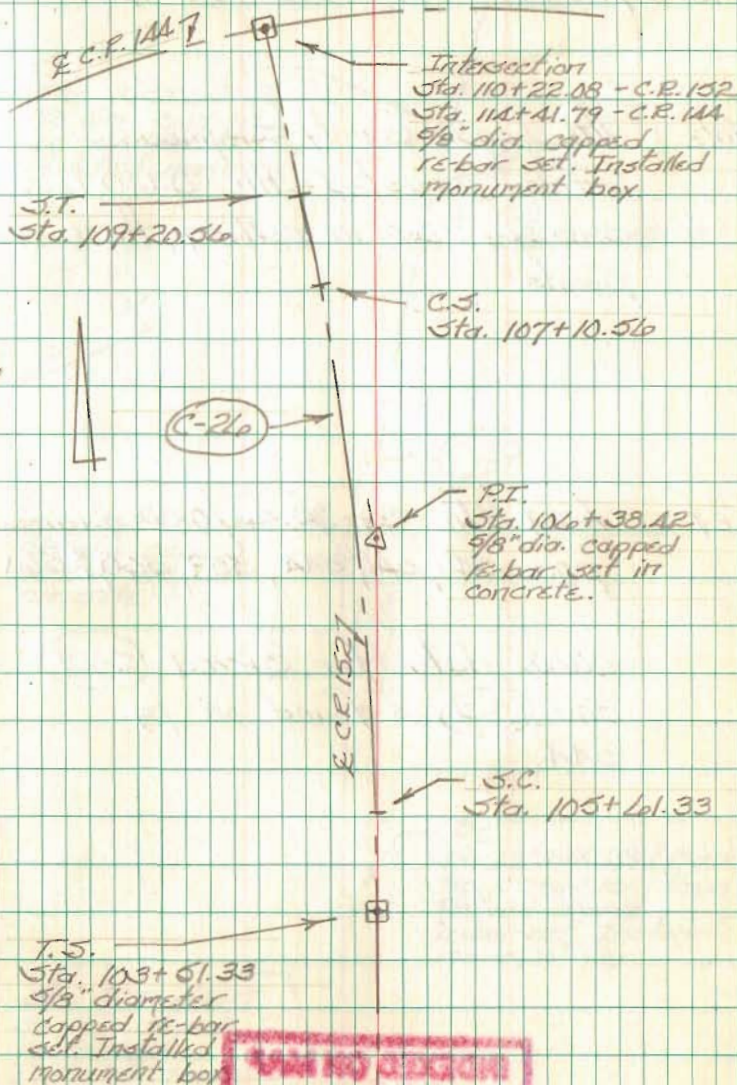 ℄ C.R. 144
Intersection
Sta. 110+22.08 - C.R. 152
Sta. 114+41.79 - C.R. 144
5/8" dia. capped
re-bar set. Installed
monument box.
S.T.
Sta. 109+20.56
C.S.
Sta. 107+10.56
C-26
P.I.
Sta. 106+38.42
5/8" dia. capped
re-bar set in
concrete.
℄ C.R. 152
S.C.
Sta. 105+61.33
T.S.
Sta. 103+51.33
5/8" diameter
capped re-bar
set. Installed
monument box
INDEXED ON MAP